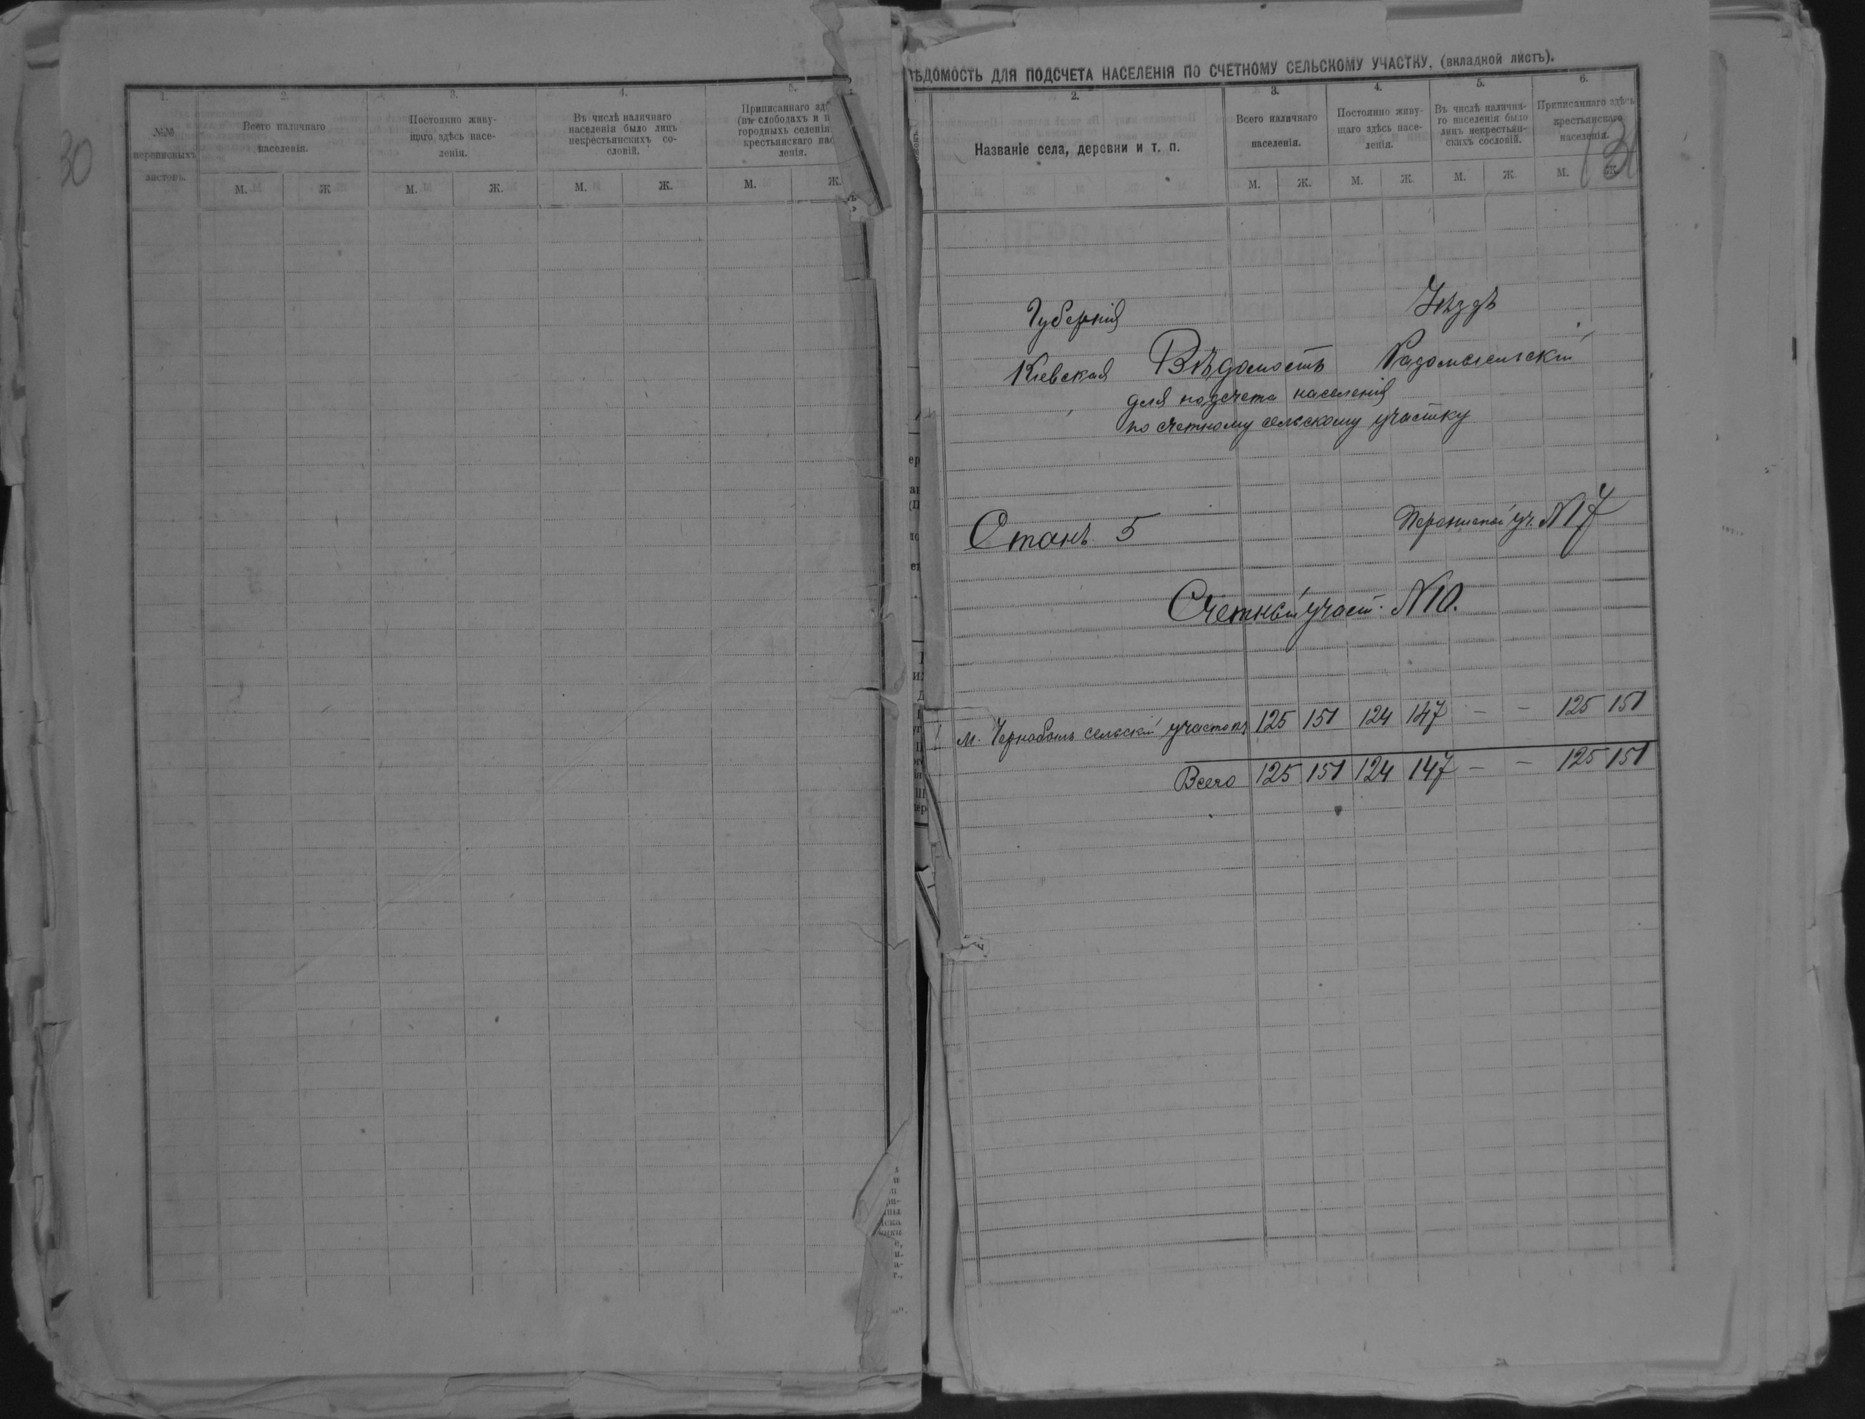 30
1.
2.
3.
4.
5.
№№
переписныхъ
листовъ.
Всего наличнаго
населенія.
Постоянно живу-
щаго здѣсь насе-
ленія.
Въ числѣ наличнаго
населенія было лицъ
некрестьянскихъ со-
словій.
Приписаннаго
(въ слободахъ и
городныхъ селенія
крестьянскаго нас
ленія.
М. Ж. М. Ж. М. Ж. М. Ж.
ВѢДОМОСТЬ ДЛЯ ПОДСЧЕТА НАСЕЛЕНІЯ ПО СЧЕТНОМУ СЕЛЬСКОМУ УЧАСТКУ. (вкладной листъ).
2.
3.
4.
5.
6.
Названіе села, деревни и т. п.
Всего наличнаго
населенія.
Постоянно живу-
щаго здѣсь насе-
ленія.
Въ числѣ налична-
го населенія было
лицъ некрестьян-
скихъ сословій.
Приписаннаго здѣсь
крестьянскаго
населенія.
31
М. Ж. М. Ж. М. Ж. М. Ж.
Губернія Уѣздъ
Кіевская Вѣдомость Радомысльскій
для подсчета населенія
по счетному сельскому участку
Станъ 5 Переписной уч. N 17
Счетный участ. N 10.
1 м. Чернобыль сельскій участокъ 125 151 124 147 - - 125 151
Всего 125 151 124 147 - - 125 151